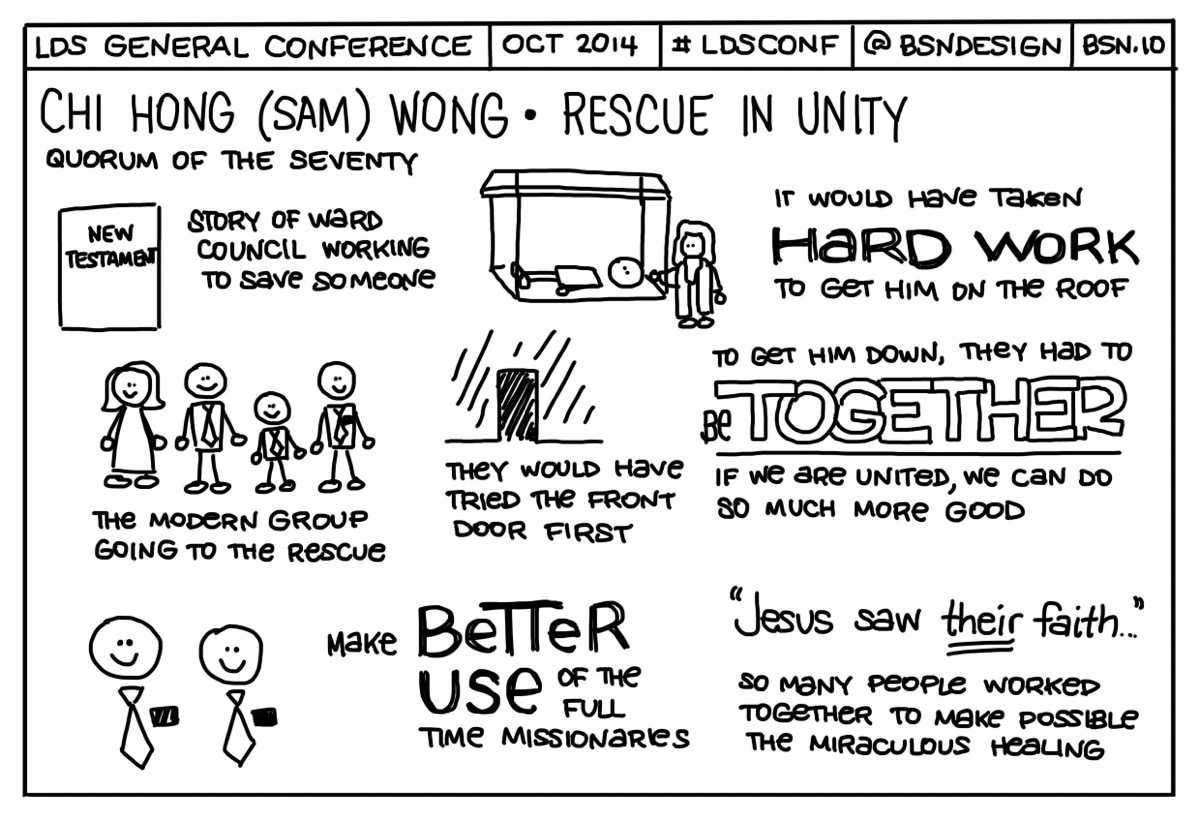 LDS GENERAL CONFERENCE
OCT 2014
# LDSCONF
@ BSNDESIGN
BSN.IO
CHI HONG (SAM) WONG • RESCUE IN UNITY
QUORUM OF THE SEVENTY
NEW
TESTAMENT
STORY OF WARD
COUNCIL WORKING
TO SAVE SOMEONE
IT WOULD HAVE TAKEN
HARD WORK
TO GET HIM ON THE ROOF
THE MODERN GROUP
GOING TO THE RESCUE
THEY WOULD HAVE
TRIED THE FRONT
DOOR FIRST
TO GET HIM DOWN, THEY HAD TO
Be TOGETHER
IF WE ARE UNITED, WE CAN DO
SO MUCH MORE GOOD
MAKE BETTER
USE OF THE
FULL
TIME MISSIONARIES
"Jesus saw their faith..."
SO MANY PEOPLE WORKED
TOGETHER TO MAKE POSSIBLE
THE MIRACULOUS HEALING